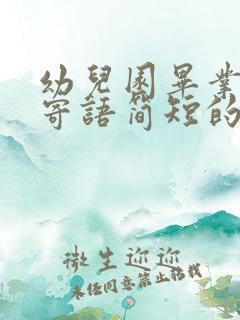 幼兒園畢業
寄語簡短的
微生迎迎
未经同意禁止转载